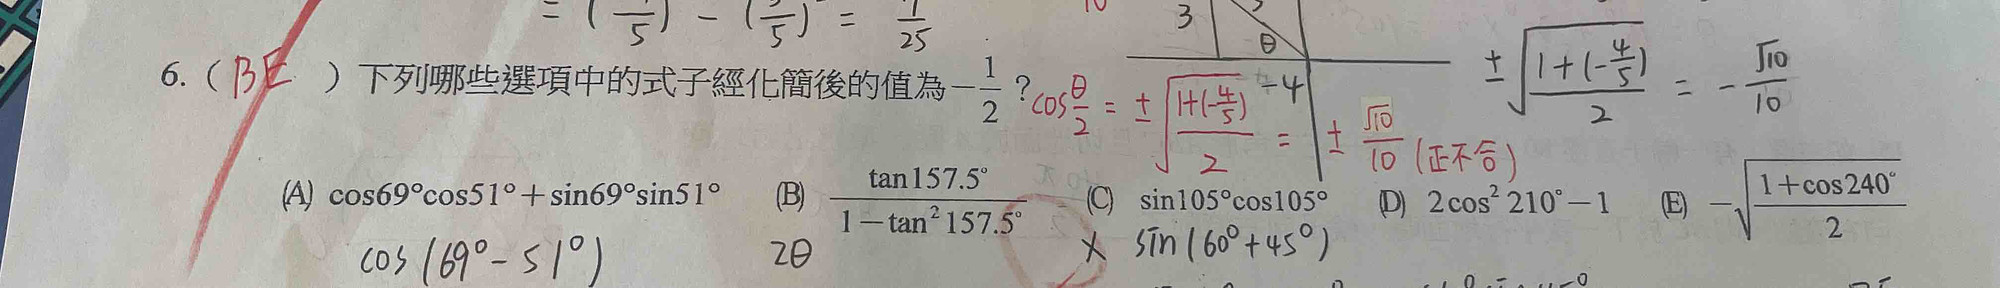 = ( /5) - ( /5) = /25
3
θ
6. ( BE ) 下列哪些選項中的式子經化簡後的值為 -1/2 ?
cos θ/2 = ±√((1+(-4/5))/2) = ± √10/10 (正不合)
-4
±√((1+(-4/5))/2) = - √10/10
(A) cos69°cos51°+sin69°sin51° (B) tan157.5°/(1-tan²157.5°) (C) sin105°cos105° (D) 2cos²210°-1 (E) -√((1+cos240°)/2)
cos(69°-51°) 2θ × sin(60°+45°)